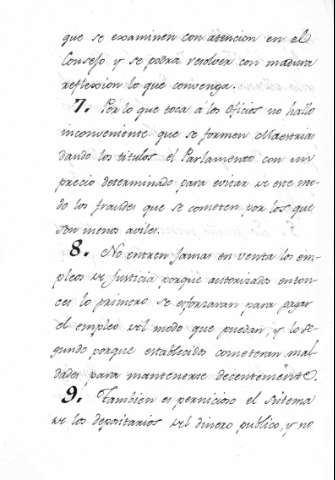 que se examinen con atencion en el
Consejo y se podra resolver con madura
reflexion lo que convenga.
7. Por lo que toca a los Oficios no hallo
inconveniente que se formen Maestrias
dando los titulos el Parlamento con un
precio determinado para evitar de ese mo-
do los fraudes que se cometen por los que
son menos aviles.
8. No entren jamas en venta los em-
pleos de justicia porque autorizados enton-
ces lo primero se esforzaran para pagar
el empleo del modo que puedan, y lo se-
gundo porque establecidos cometeran mal-
dades para mantenerse decentemente.
9. Tambien es pernicioso el Sistema
de los depositarios del dinero publico, y no